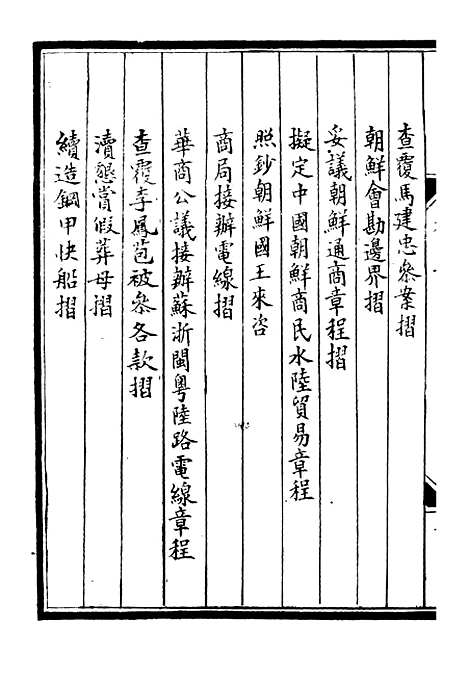 查覆馬建忠參案摺
朝鮮會勘邊界摺
妥議朝鮮通商章程摺
擬定中國朝鮮商民水陸貿易章程
照鈔朝鮮國王來咨
商局接辦電線摺
華商公議接辦蘇浙閩粵陸路電線章程
查覆李鳳苞被參各款摺
瀆懇賞假葬母摺
續造鋼甲快船摺